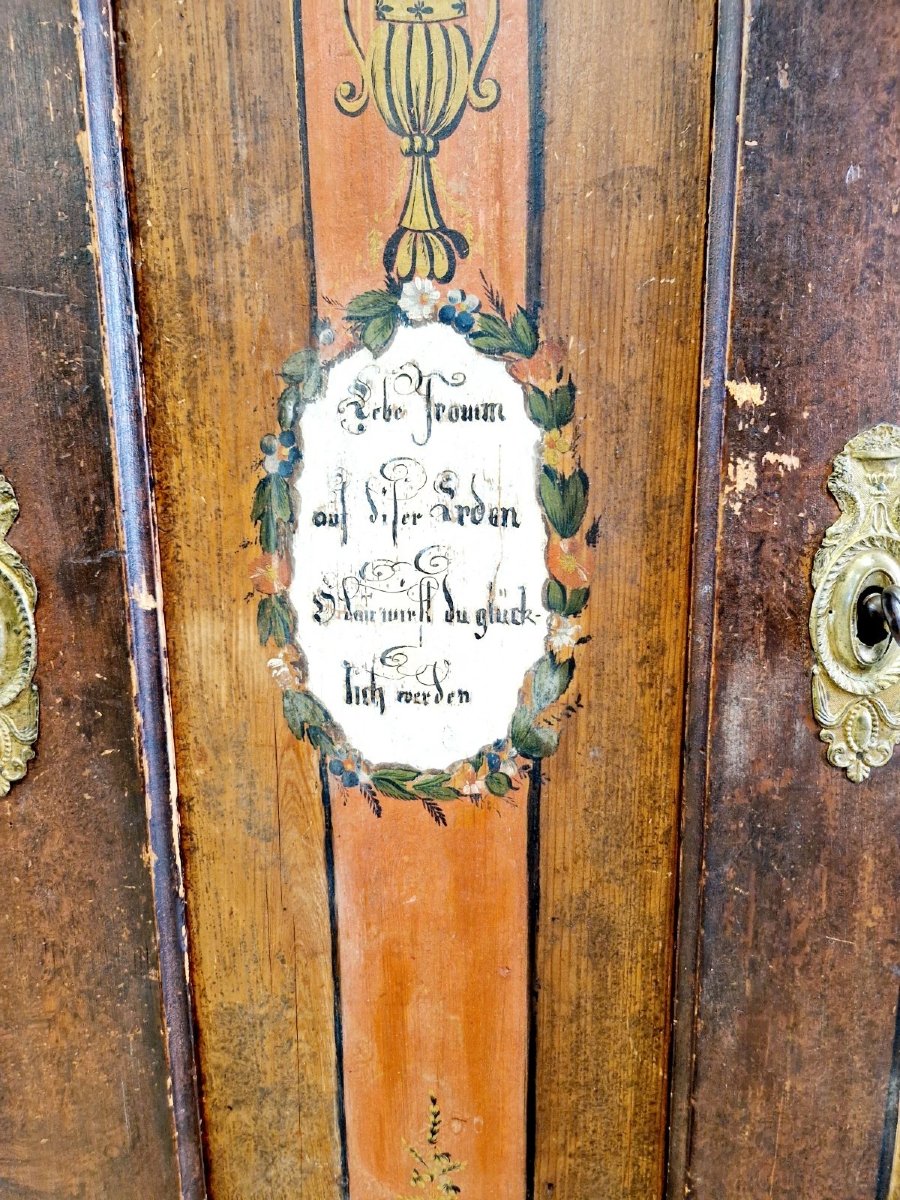 Lebe From̄
auf diser Erden
Dan wirst du glück-
lich werden